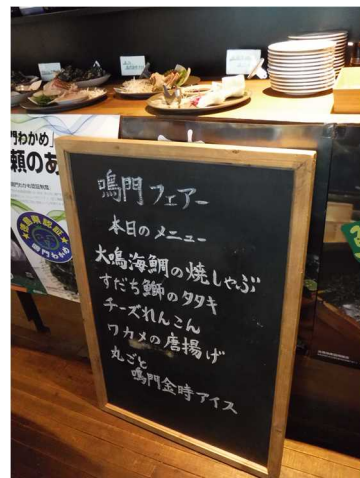 門わかめ」
頼のあ
徳島県認証
鳴門わかめ
鳴門フェアー
本日のメニュー
大鳴海鯛の焼しゃぶ
すだち鰤のタタキ
チーズれんこん
ワカメの唐揚げ
丸ごと
鳴門金時アイス